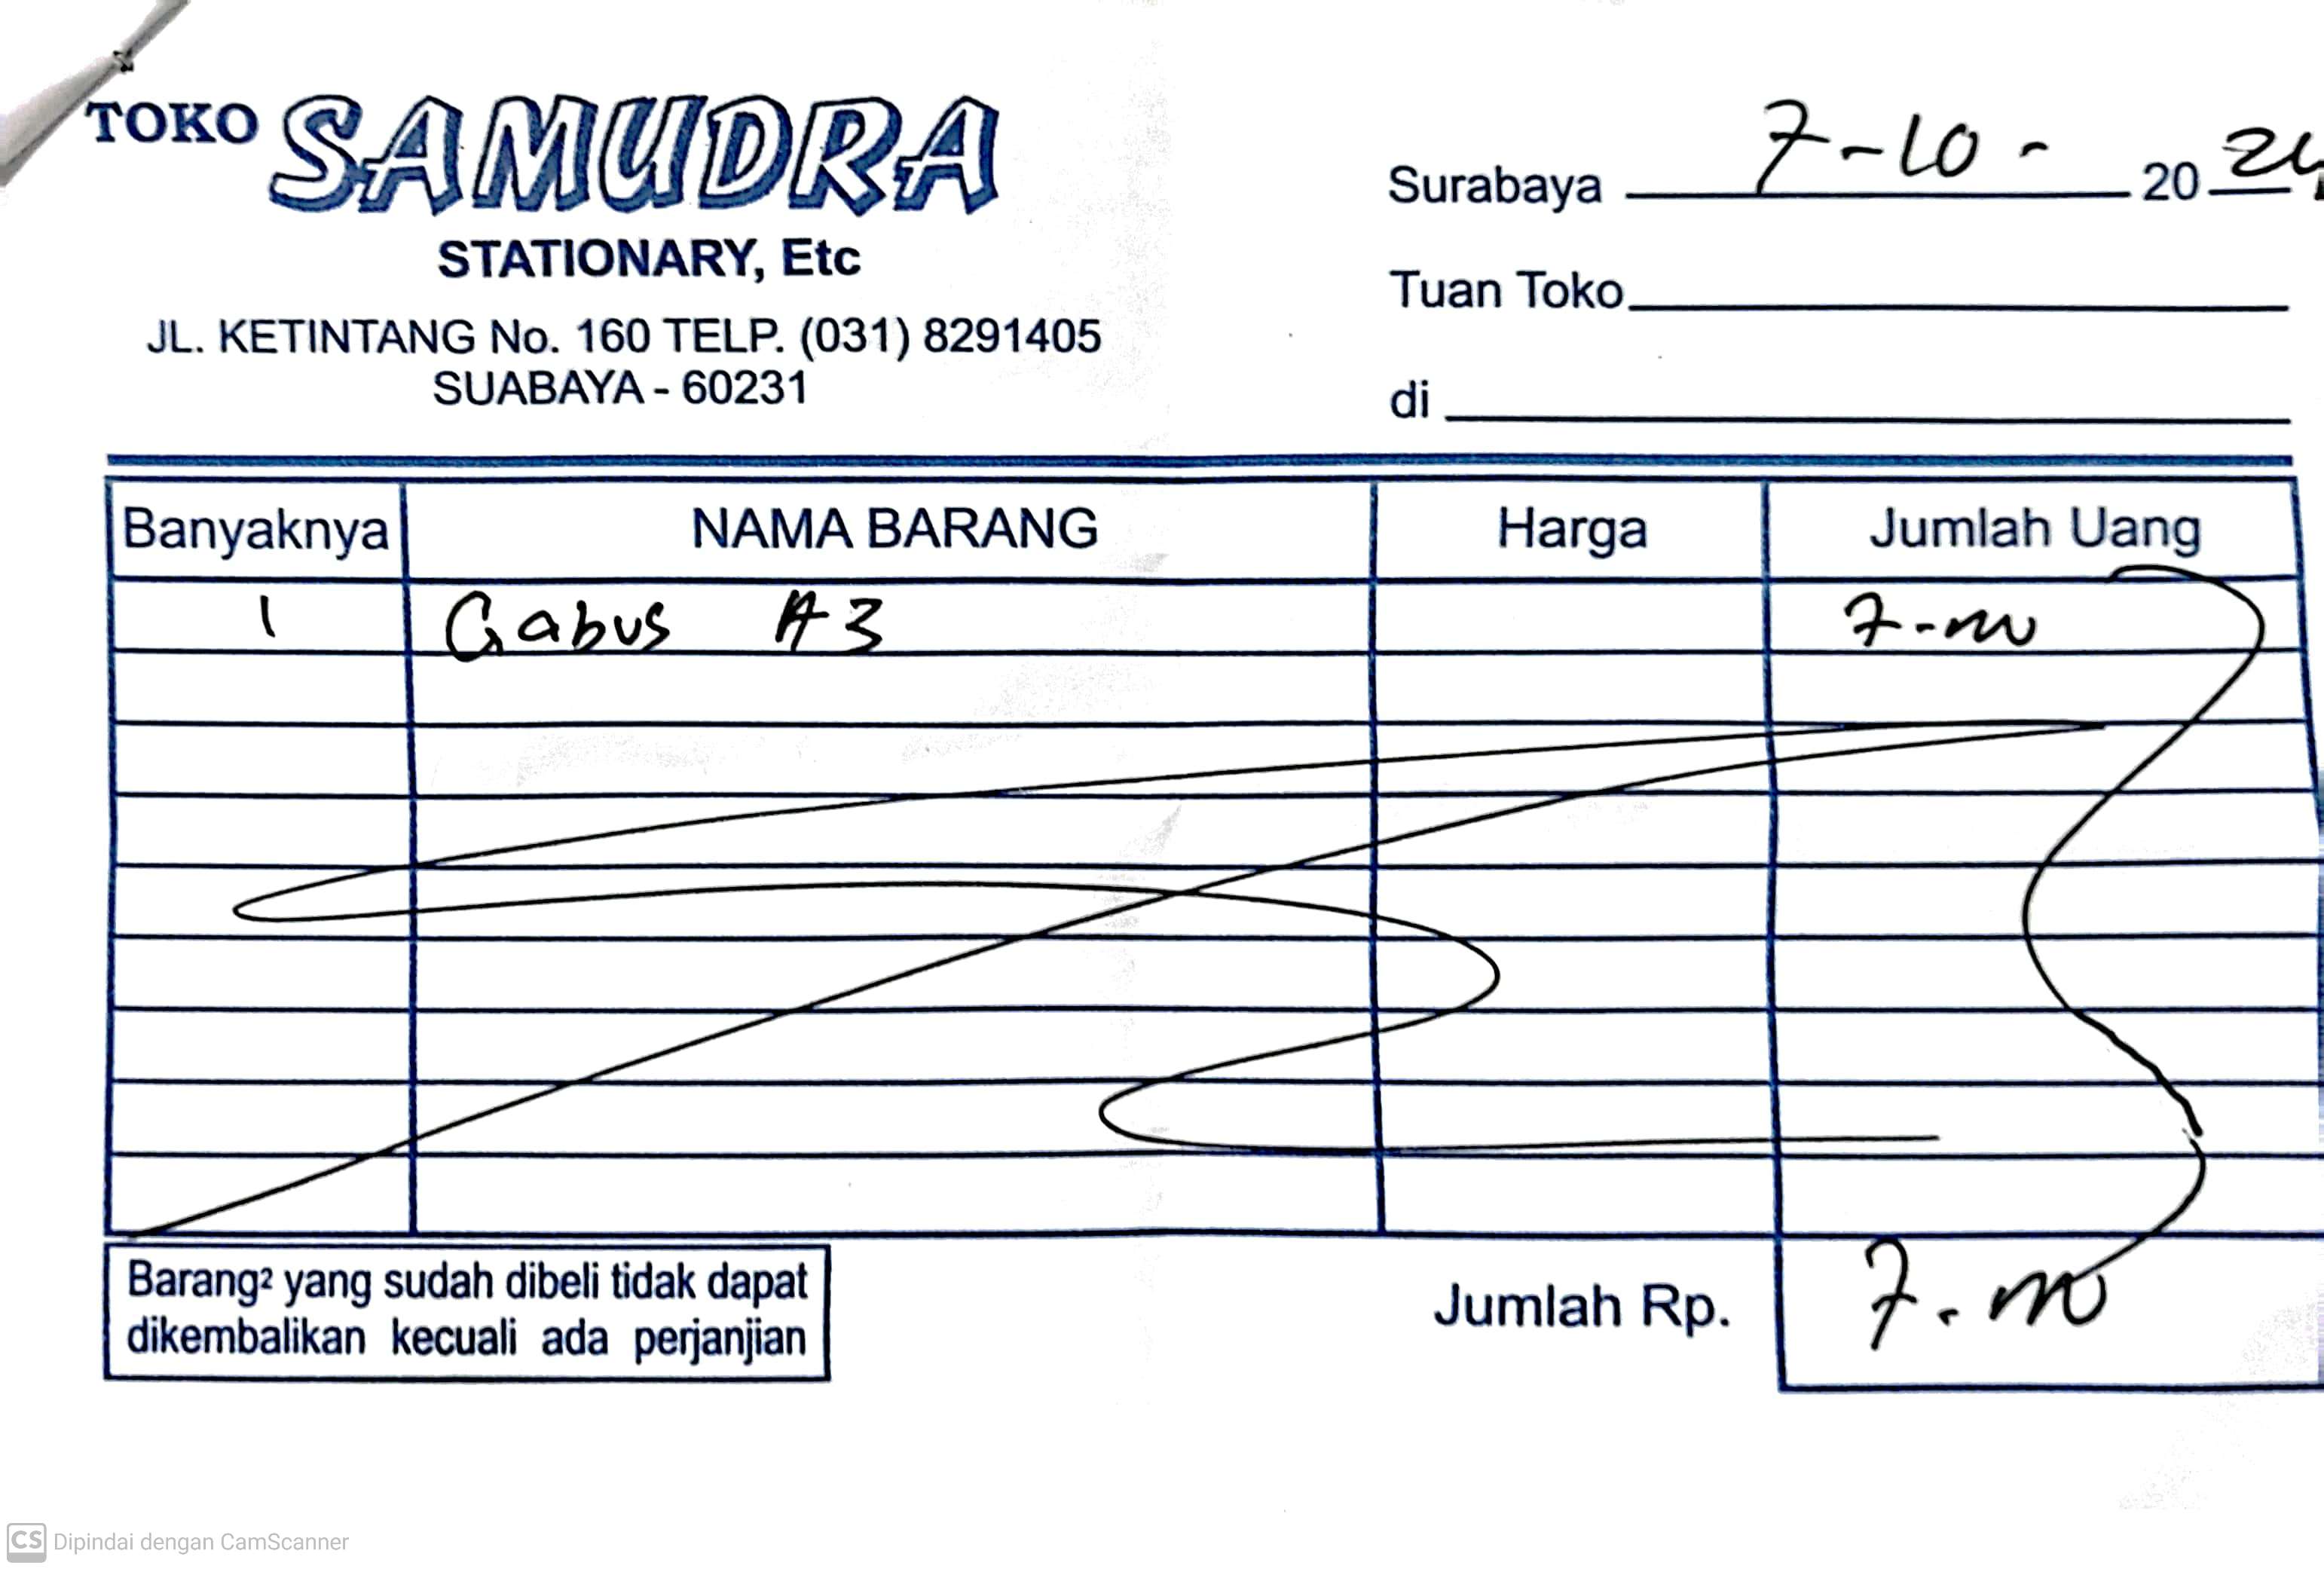 TOKO SAMUDRA
STATIONARY, Etc
JL. KETINTANG No. 160 TELP. (031) 8291405
SUABAYA - 60231
Surabaya 7-10- 2024
Tuan Toko
di
Banyaknya NAMA BARANG Harga Jumlah Uang
1 Gabus A3 7.000
Jumlah Rp. 7.000
Barang² yang sudah dibeli tidak dapat
dikembalikan kecuali ada perjanjian
CS Dipindai dengan CamScanner